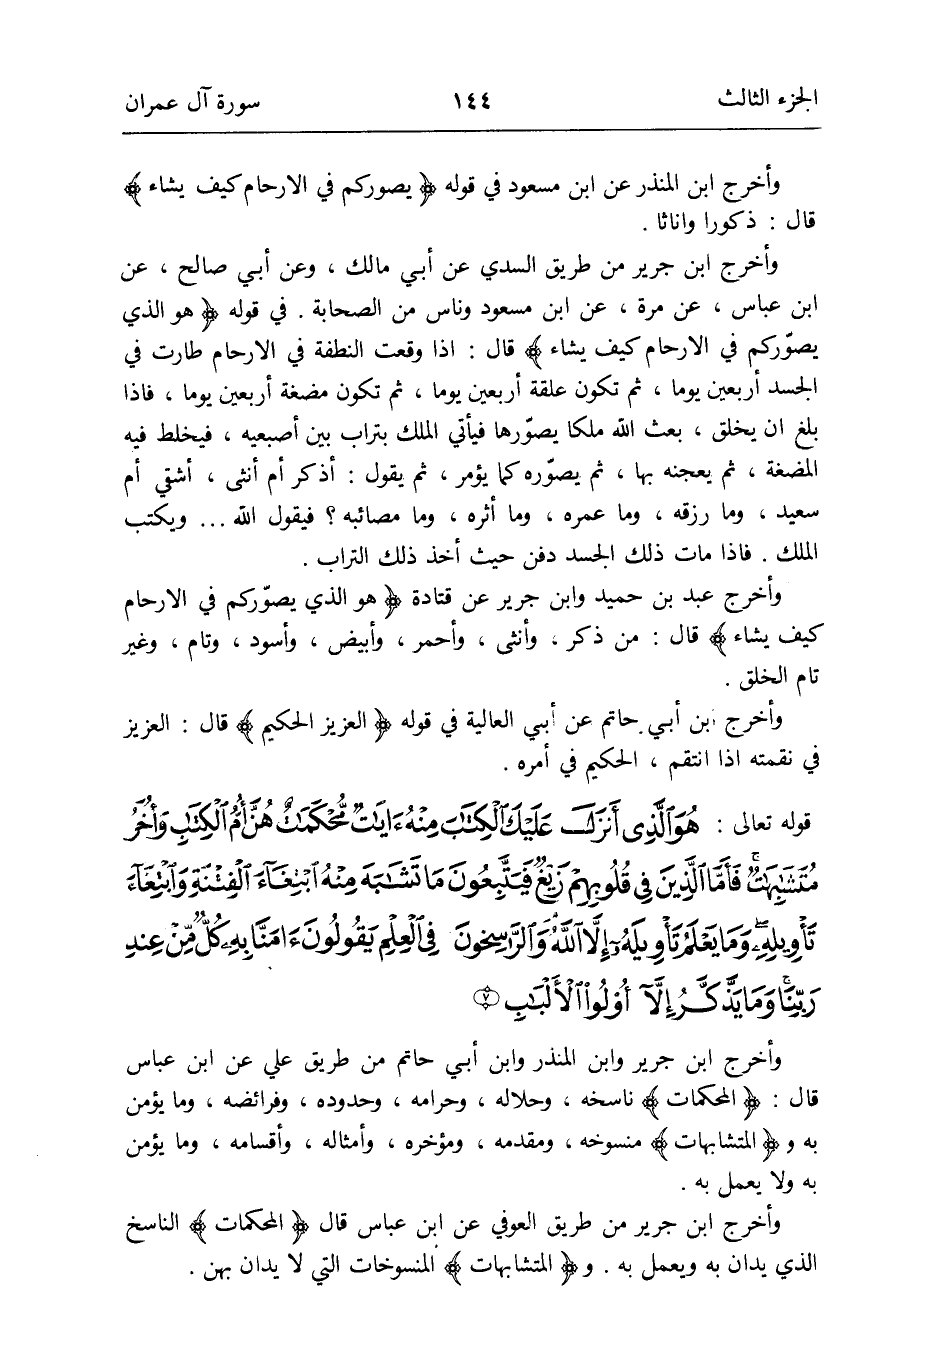 الجزء الثالث ١٤٤ سورة آل عمران
وأخرج ابن المنذر عن ابن مسعود في قوله ﴿ يصوركم في الارحام كيف يشاء ﴾
قال : ذكورا واناثا .
وأخرج ابن جرير من طريق السدي عن أبي مالك ، وعن أبي صالح ، عن
ابن عباس ، عن مرة ، عن ابن مسعود وناس من الصحابة . في قوله ﴿ هو الذي
يصوّركم في الارحام كيف يشاء ﴾ قال : اذا وقعت النطفة في الارحام طارت في
الجسد أربعين يوما ، ثم تكون علقة أربعين يوما ، ثم تكون مضغة أربعين يوما ، فاذا
بلغ ان يخلق ، بعث الله ملكا يصوّرها فيأتي الملك بتراب بين أصبعيه ، فيخلط فيه
المضغة ، ثم يعجنه بها ، ثم يصوّره كما يؤمر ، ثم يقول : أذكر أم أنثى ، أشقي أم
سعيد ، وما رزقه ، وما عمره ، وما أثره ، وما مصائبه ؟ فيقول الله ... ويكتب
الملك . فاذا مات ذلك الجسد دفن حيث أخذ ذلك التراب .
وأخرج عبد بن حميد وابن جرير عن قتادة ﴿ هو الذي يصوّركم في الارحام
كيف يشاء ﴾ قال : من ذكر ، وأنثى ، وأحمر ، وأبيض ، وأسود ، وتام ، وغير
تام الخلق .
وأخرج ابن أبي حاتم عن أبي العالية في قوله ﴿ العزيز الحكيم ﴾ قال : العزيز
في نقمته اذا انتقم ، الحكيم في أمره .
قوله تعالى : هُوَ ٱلَّذِىٓ أَنزَلَ عَلَيْكَ ٱلْكِتَٰبَ مِنْهُ ءَايَٰتٌ مُّحْكَمَٰتٌ هُنَّ أُمُّ ٱلْكِتَٰبِ وَأُخَرُ
مُتَشَٰبِهَٰتٌ ۖ فَأَمَّا ٱلَّذِينَ فِى قُلُوبِهِمْ زَيْغٌ فَيَتَّبِعُونَ مَا تَشَٰبَهَ مِنْهُ ٱبْتِغَآءَ ٱلْفِتْنَةِ وَٱبْتِغَآءَ
تَأْوِيلِهِۦ ۗ وَمَا يَعْلَمُ تَأْوِيلَهُۥٓ إِلَّا ٱللَّهُ ۗ وَٱلرَّٰسِخُونَ فِى ٱلْعِلْمِ يَقُولُونَ ءَامَنَّا بِهِۦ كُلٌّ مِّنْ عِندِ
رَبِّنَا ۗ وَمَا يَذَّكَّرُ إِلَّآ أُو۟لُوا۟ ٱلْأَلْبَٰبِ ﴿٧﴾
وأخرج ابن جرير وابن المنذر وابن أبي حاتم من طريق علي عن ابن عباس
قال : ﴿ المحكمات ﴾ ناسخه ، وحلاله ، وحرامه ، وحدوده ، وفرائضه ، وما يؤمن
به و ﴿ المتشابهات ﴾ منسوخه ، ومقدمه ، ومؤخره ، وأمثاله ، وأقسامه ، وما يؤمن
به ولا يعمل به .
وأخرج ابن جرير من طريق العوفي عن ابن عباس قال ﴿ المحكمات ﴾ الناسخ
الذي يدان به ويعمل به . و ﴿ المتشابهات ﴾ المنسوخات التي لا يدان بهن .